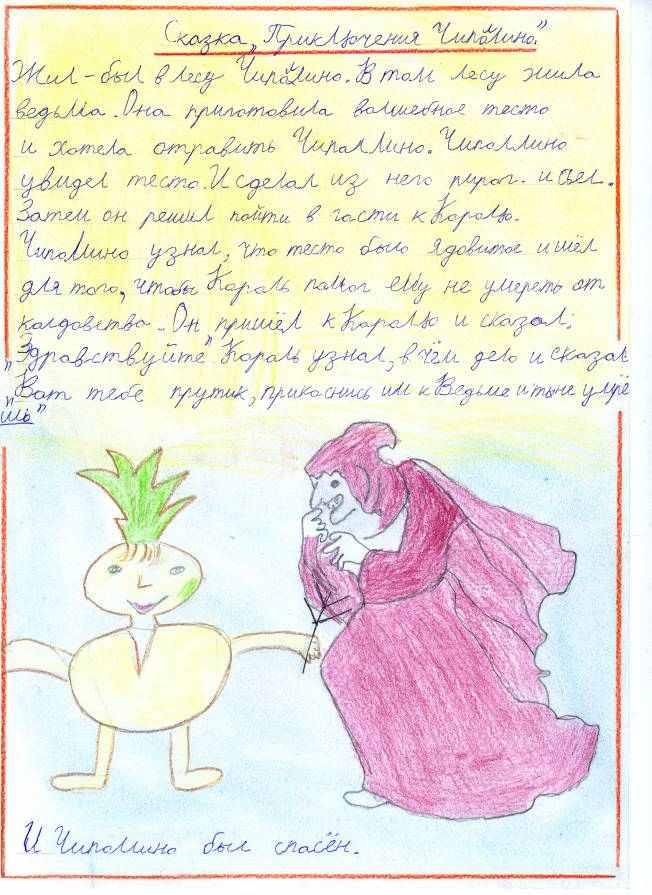 Сказка „Приключения Чиполлино."
Жил-был в лесу Чиполлино. В том лесу жила
ведьма. Она приготовила волшебное тесто
и хотела отравить Чиполлино. Чиполлино
увидел тесто. И сделал из него пирог. и съел.
Затем он решил пойти в гости к Королю.
Чиполлино узнал, что тесто было ядовитое и шёл
для того, чтобы Король помог ему не умереть от
колдовства. Он пришёл к Королю и сказал:
„Здравствуйте" Король узнал, в чём дело и сказал
„Вот тебе прутик, прикоснись им к Ведьме и ты не умрё
шь"
И Чиполлино был спасён.